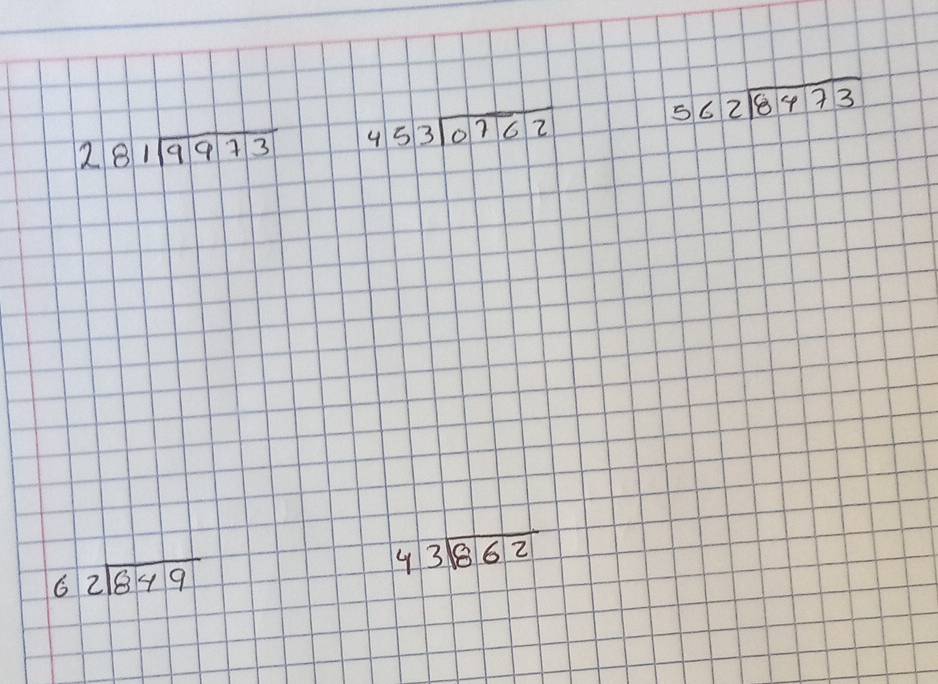 281⟌9973 453⟌0762 562⟌8473
62⟌849 43⟌862